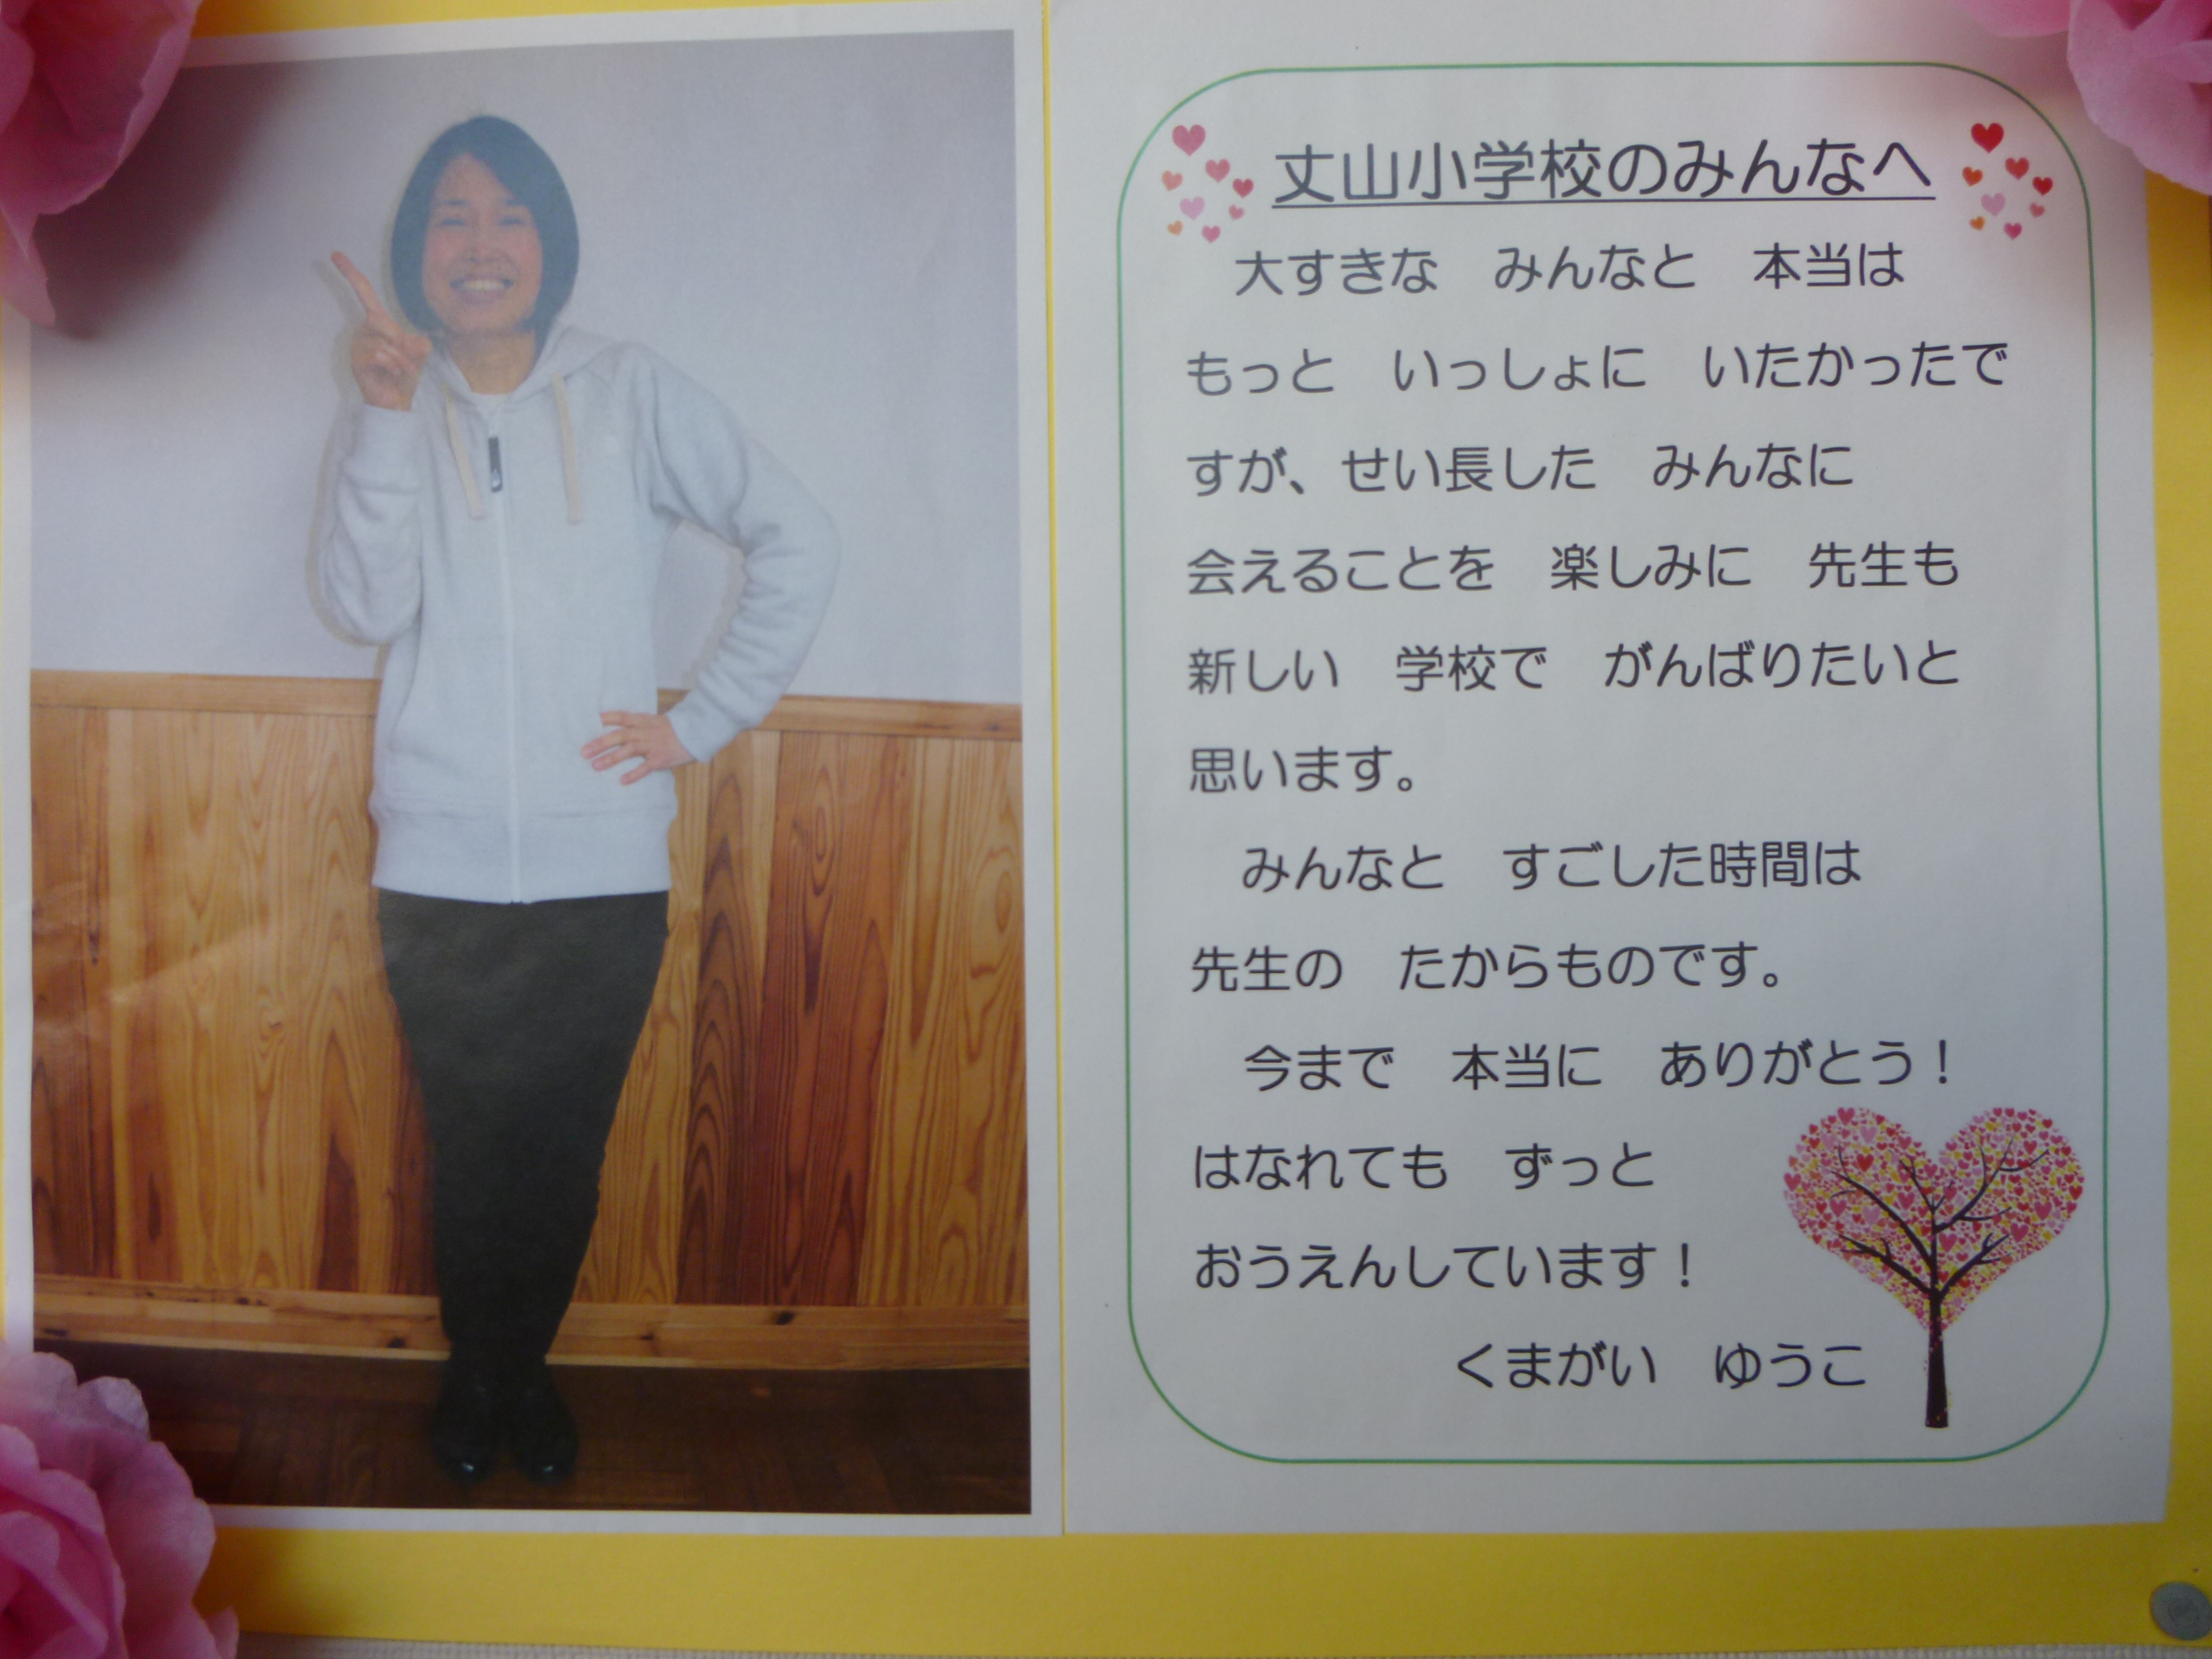 丈山小学校のみんなへ
大すきな　みんなと　本当は
もっと　いっしょに　いたかったで
すが、せい長した　みんなに
会えることを　楽しみに　先生も
新しい　学校で　がんばりたいと
思います。
みんなと　すごした時間は
先生の　たからものです。
今まで　本当に　ありがとう！
はなれても　ずっと
おうえんしています！
くまがい　ゆうこ